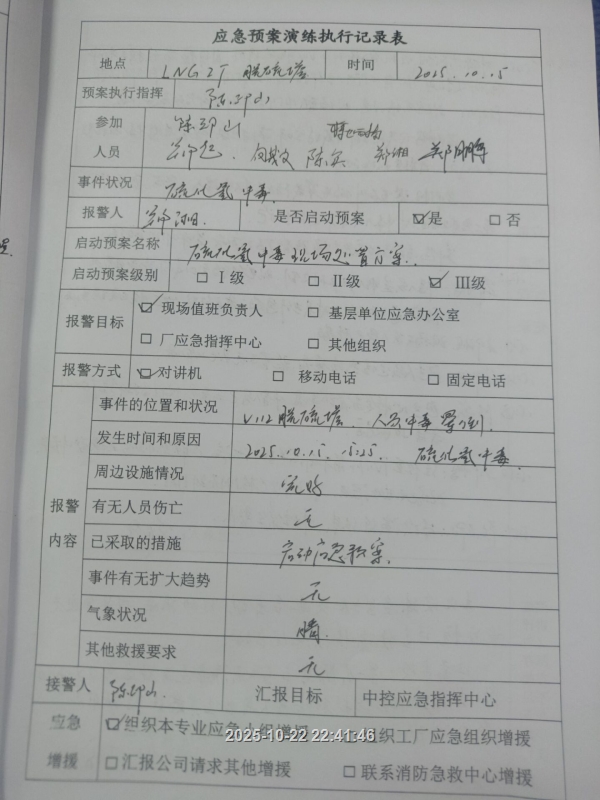 应急预案演练执行记录表
地点 LNG 2T 脱硫塔 时间 2025.10.15
预案执行指挥 陈印山
参加 陈印山
人员 陈实 郑湘 郑鹏
事件状况 硫化氢中毒
报警人 是否启动预案 ☑是 □否
启动预案名称 硫化氢中毒现场处置方案
启动预案级别 □Ⅰ级 □Ⅱ级 ☑Ⅲ级
报警目标 ☑现场值班负责人 □基层单位应急办公室
□厂应急指挥中心 □其他组织
报警方式 ☑对讲机 □移动电话 □固定电话
报警内容 事件的位置和状况 V112脱硫塔 人员中毒晕倒.
发生时间和原因 2025.10.15. 15:25. 硫化氢中毒.
周边设施情况 完好
有无人员伤亡 无
已采取的措施 启动应急预案.
事件有无扩大趋势 无
气象状况 晴.
其他救援要求 无
接警人 陈印山. 汇报目标 中控应急指挥中心
应急 ☑组织本专业应急小组增援 组织工厂应急组织增援
2025-10-22 22:41:46
增援 □汇报公司请求其他增援 □联系消防急救中心增援